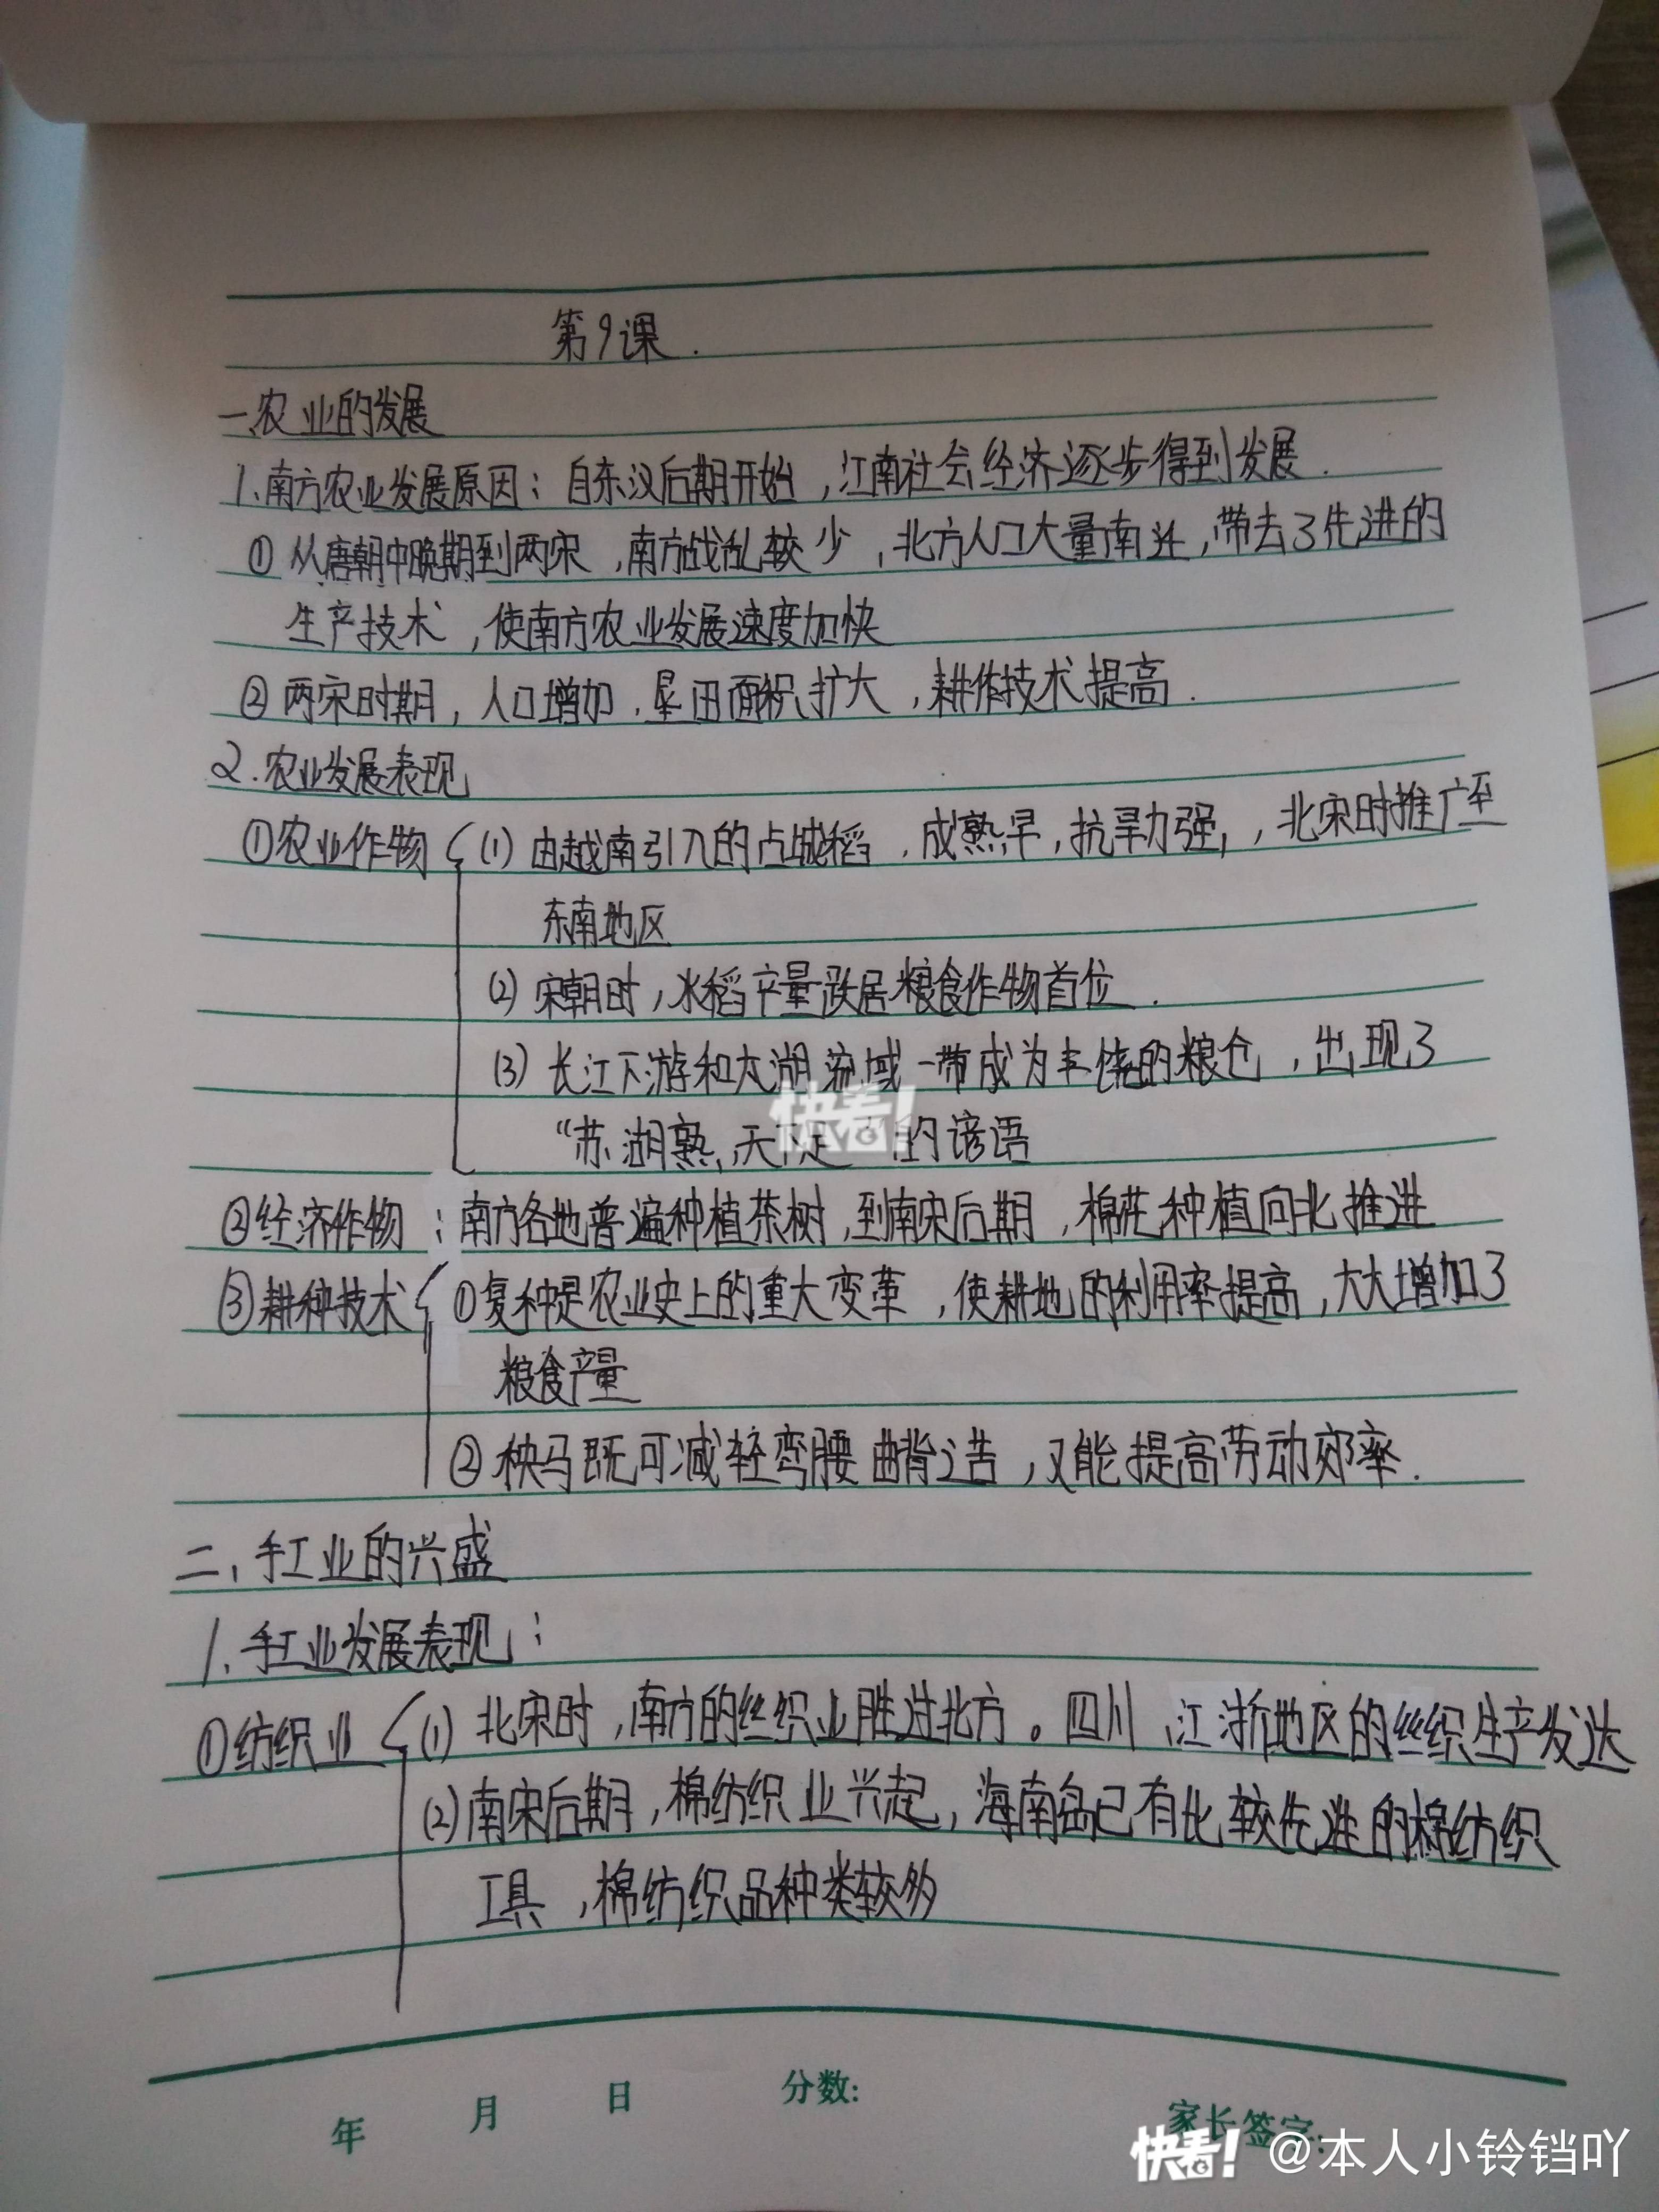 第9课.
一、农业的发展
1、南方农业发展原因：自东汉后期开始，江南社会经济逐步得到发展.
① 从唐朝中晚期到两宋，南方战乱较少，北方人口大量南迁，带去了先进的
生产技术，使南方农业发展速度加快
② 两宋时期，人口增加，垦田面积扩大，耕作技术提高.
2.农业发展表现
①农业作物 (1) 由越南引入的占城稻，成熟早，抗旱力强，，北宋时推广至
东南地区
(2) 宋朝时，水稻产量跃居粮食作物首位.
(3) 长江下游和太湖流域一带成为丰饶的粮仓，出现了
“苏湖熟，天下足”的谚语
快看!
②经济作物：南方各地普遍种植茶树，到南宋后期，棉花种植向北推进
③耕种技术 ①复种是农业史上的重大变革，使耕地的利用率提高，大大增加了
粮食产量
② 秧马既可减轻弯腰曲背之苦，又能提高劳动效率.
二、手工业的兴盛
1、手工业发展表现：
①纺织业 (1) 北宋时，南方的丝织业胜过北方。四川、江浙地区的丝织生产发达
(2)南宋后期，棉纺织业兴起，海南岛已有比较先进的棉纺织
工具，棉纺织品种类较多
年 月 日 分数: 家长签字:
快看! @本人小铃铛吖